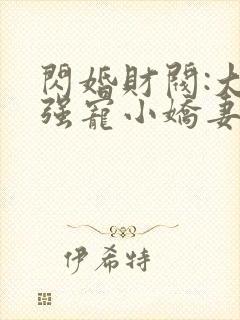 閃婚財閥:大
强寵小嬌妻
伊希特